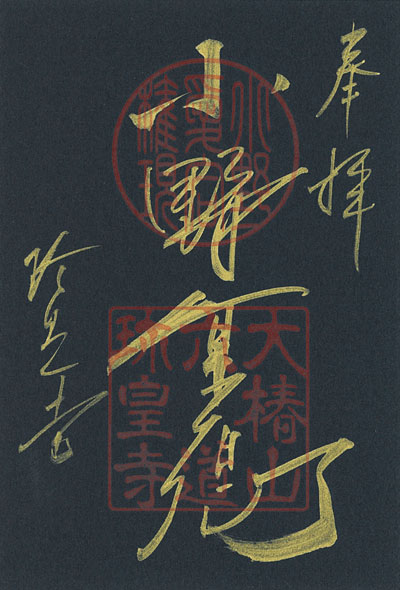 奉拝
小野篁卿
珍皇寺
大椿山
六道
珍皇寺